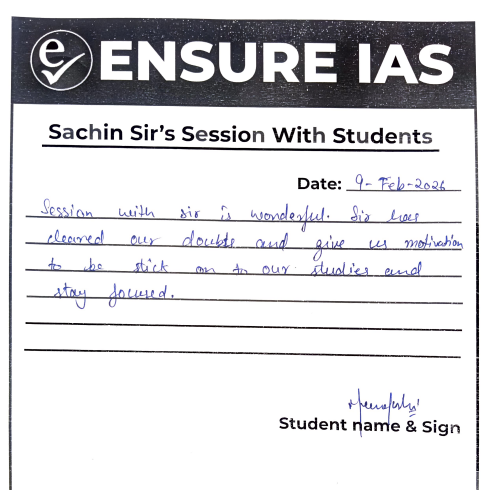 e
ENSURE IAS
Sachin Sir's Session With Students
Date: 9-Feb-2026
Session with sir is wonderful. Sir has
cleared our doubts and give us motivation
to be stick on to our studies and
stay focused.
Student name & Sign